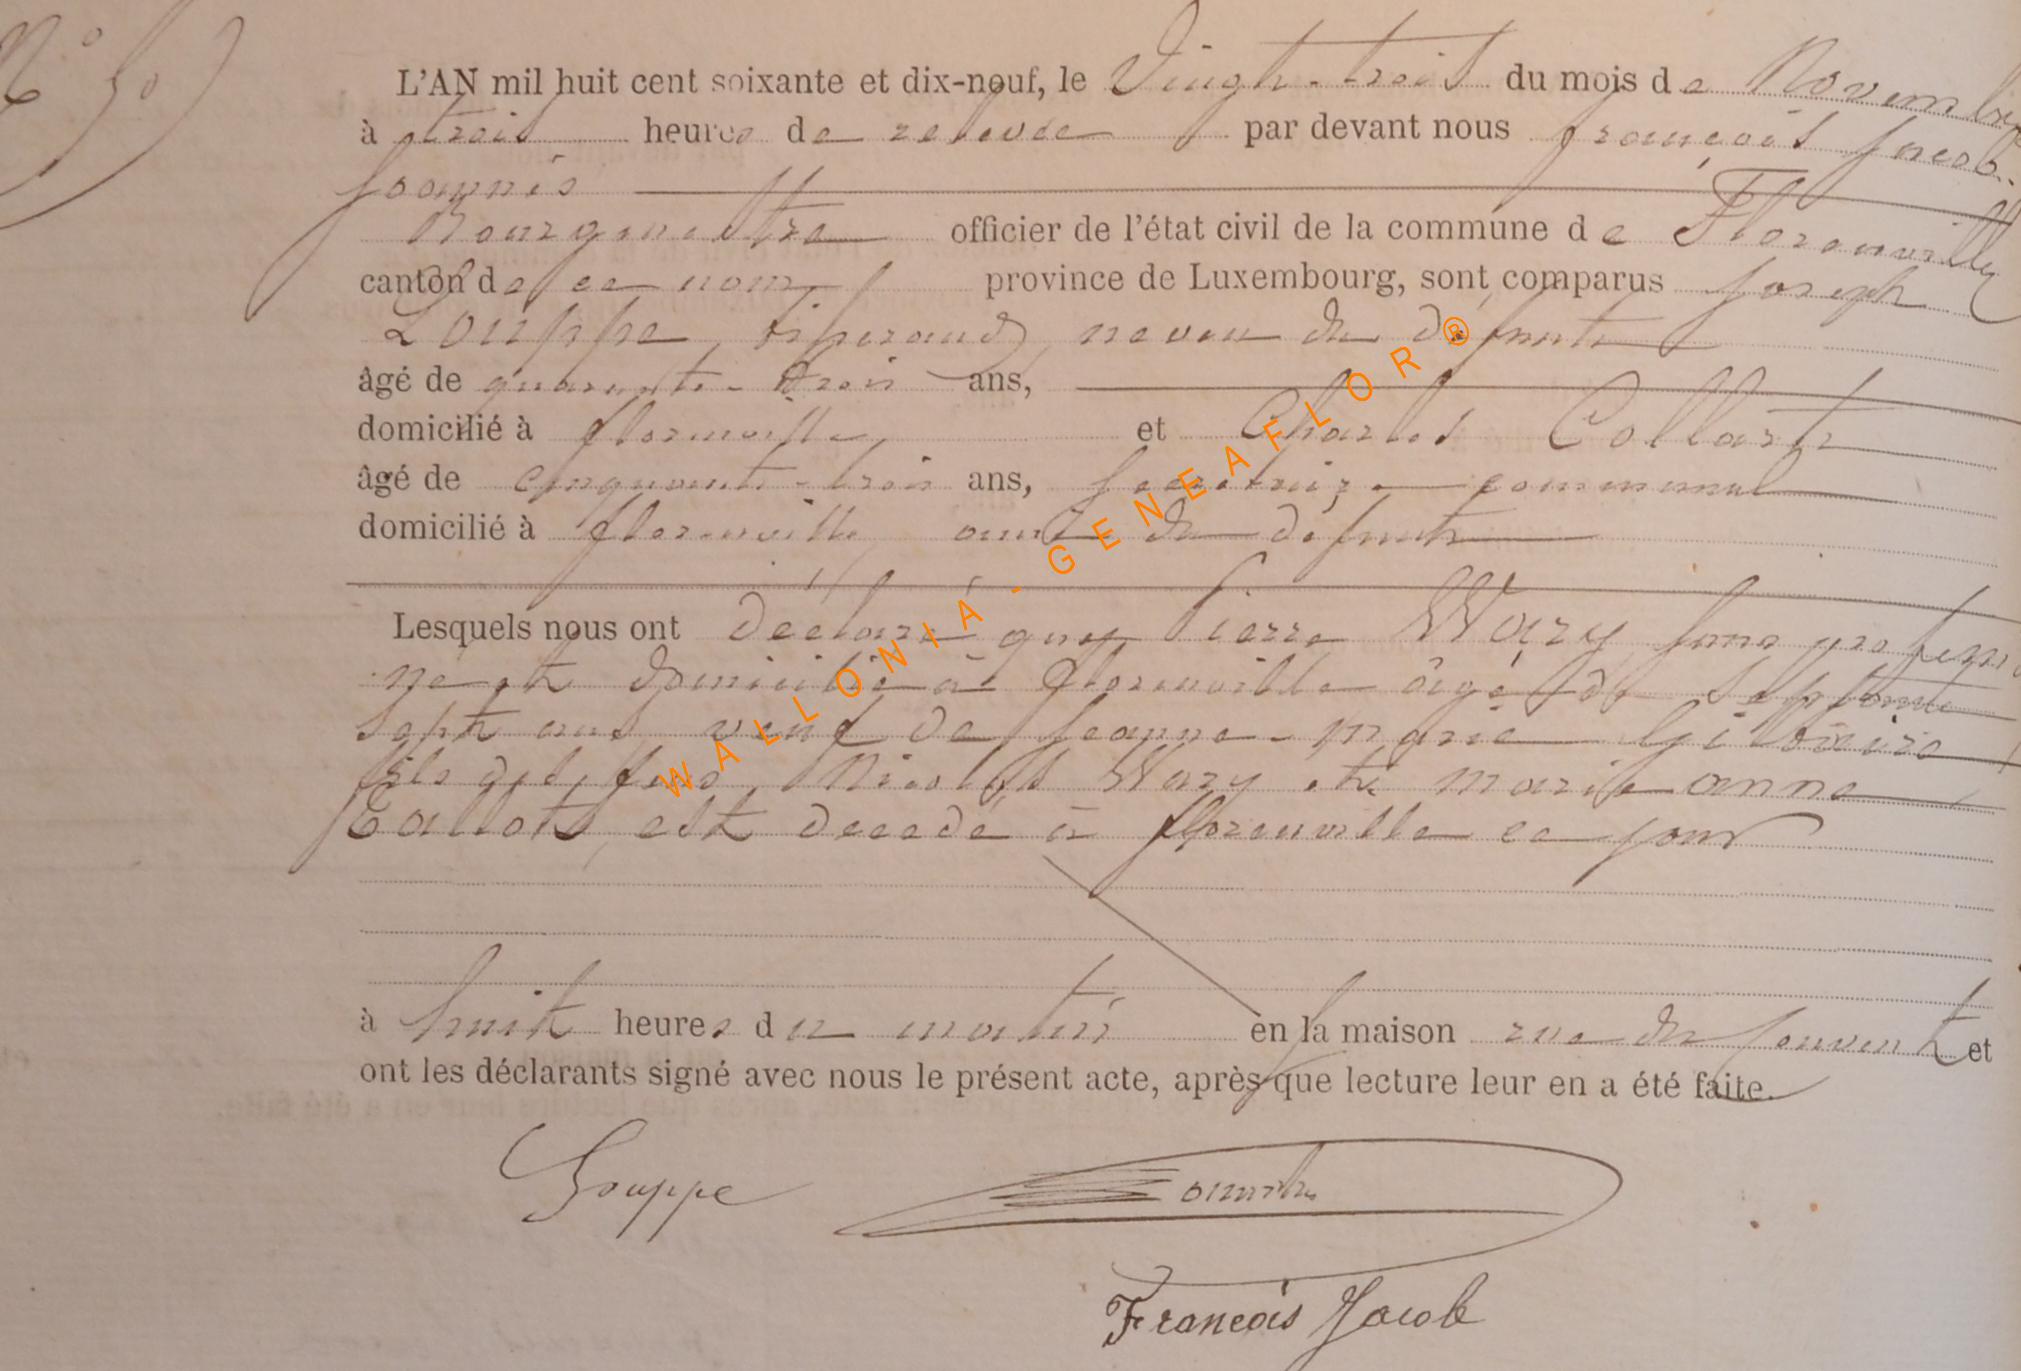 N° 50
L'AN mil huit cent soixante et dix-neuf, le Vingt-trois du mois de Novembre
à trois heures de relevée par devant nous françois Jacob
Joannès
Bourgmestre officier de l'état civil de la commune de Florenville
canton de ce nom province de Luxembourg, sont comparus Joseph
Louppe, tisserand, neveu du défunt
âgé de quarante-trois ans,
domicilié à florenville, et Charles Collart
âgé de cinquante-trois ans, Secrétaire communal
domicilié à florenville, ami du défunt
Lesquels nous ont déclaré que Pierre Wary sans profession
né et domicilié à florenville âgé de septante
sept ans, veuf de Jeanne-Marie
fils des feus Nicolas Wary et Marie anne
est décédé à florenville ce jour
à huit heures du matin en la maison rue du Couvent et
ont les déclarants signé avec nous le présent acte, après que lecture leur en a été faite.
Louppe
François Jacob
WALLONIA-GENEAFLOR®